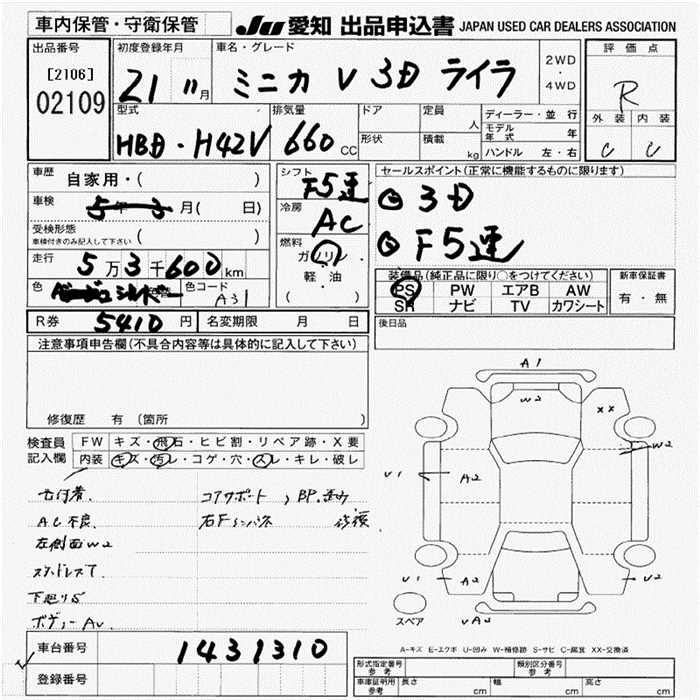 車内保管・守衛保管
JU 愛知 出品申込書 JAPAN USED CAR DEALERS ASSOCIATION
出品番号
[2106]
02109
初度登録年月
21 11月
車名・グレード
ミニカ V 3D ライラ
2WD
・
4WD
評価点
R
外装 内装
C C
型式
HBD・H42V
排気量
660cc
ドア
形状
定員 人
積載 kg
ディーラー・並行
モデル年式 年
ハンドル 左・右
車歴 自家用・( )
車検 5年3月( 日)
受検形態
車検付きのみ記入して下さい ( )
走行 5万3千600km
色 シルバー 色替
色コード A31
シフト F5速
冷房 AC
燃料 ガソリン
軽・油
( )
セールスポイント(正常に機能するものに限ります)
◎ 3D
◎ F5速
装備品(純正品に限り○をつけてください)
PS PW エアB AW
SR ナビ TV カワシート
新車保証書
有・無
R券 5410円
名変期限 月 日
後日品
注意事項申告欄(不具合内容等は具体的に記入して下さい)
修復歴 有 (箇所 )
検査員記入欄
FW キズ・飛石・ヒビ割・リペア跡・X要
内装 キズ・汚レ・コゲ・穴・スレ・キレ・破レ
コアサポート、BP.歪み
AC不良
右Fインパネ 修復
左側面W2
スタッドレスT
下廻りS
ボディーAU
A1
W2
XX
W2
U1
A2
U1
A2
U2
UA2
スペア
A-キズ E-エクボ U-凹み W-補修跡 S-サビ C-腐食 XX-交換済
車台番号 1431310
登録番号
形式指定番号 参考
類別区分番号 参考
車庫証明用 参考
長さ cm
幅 cm
高さ cm